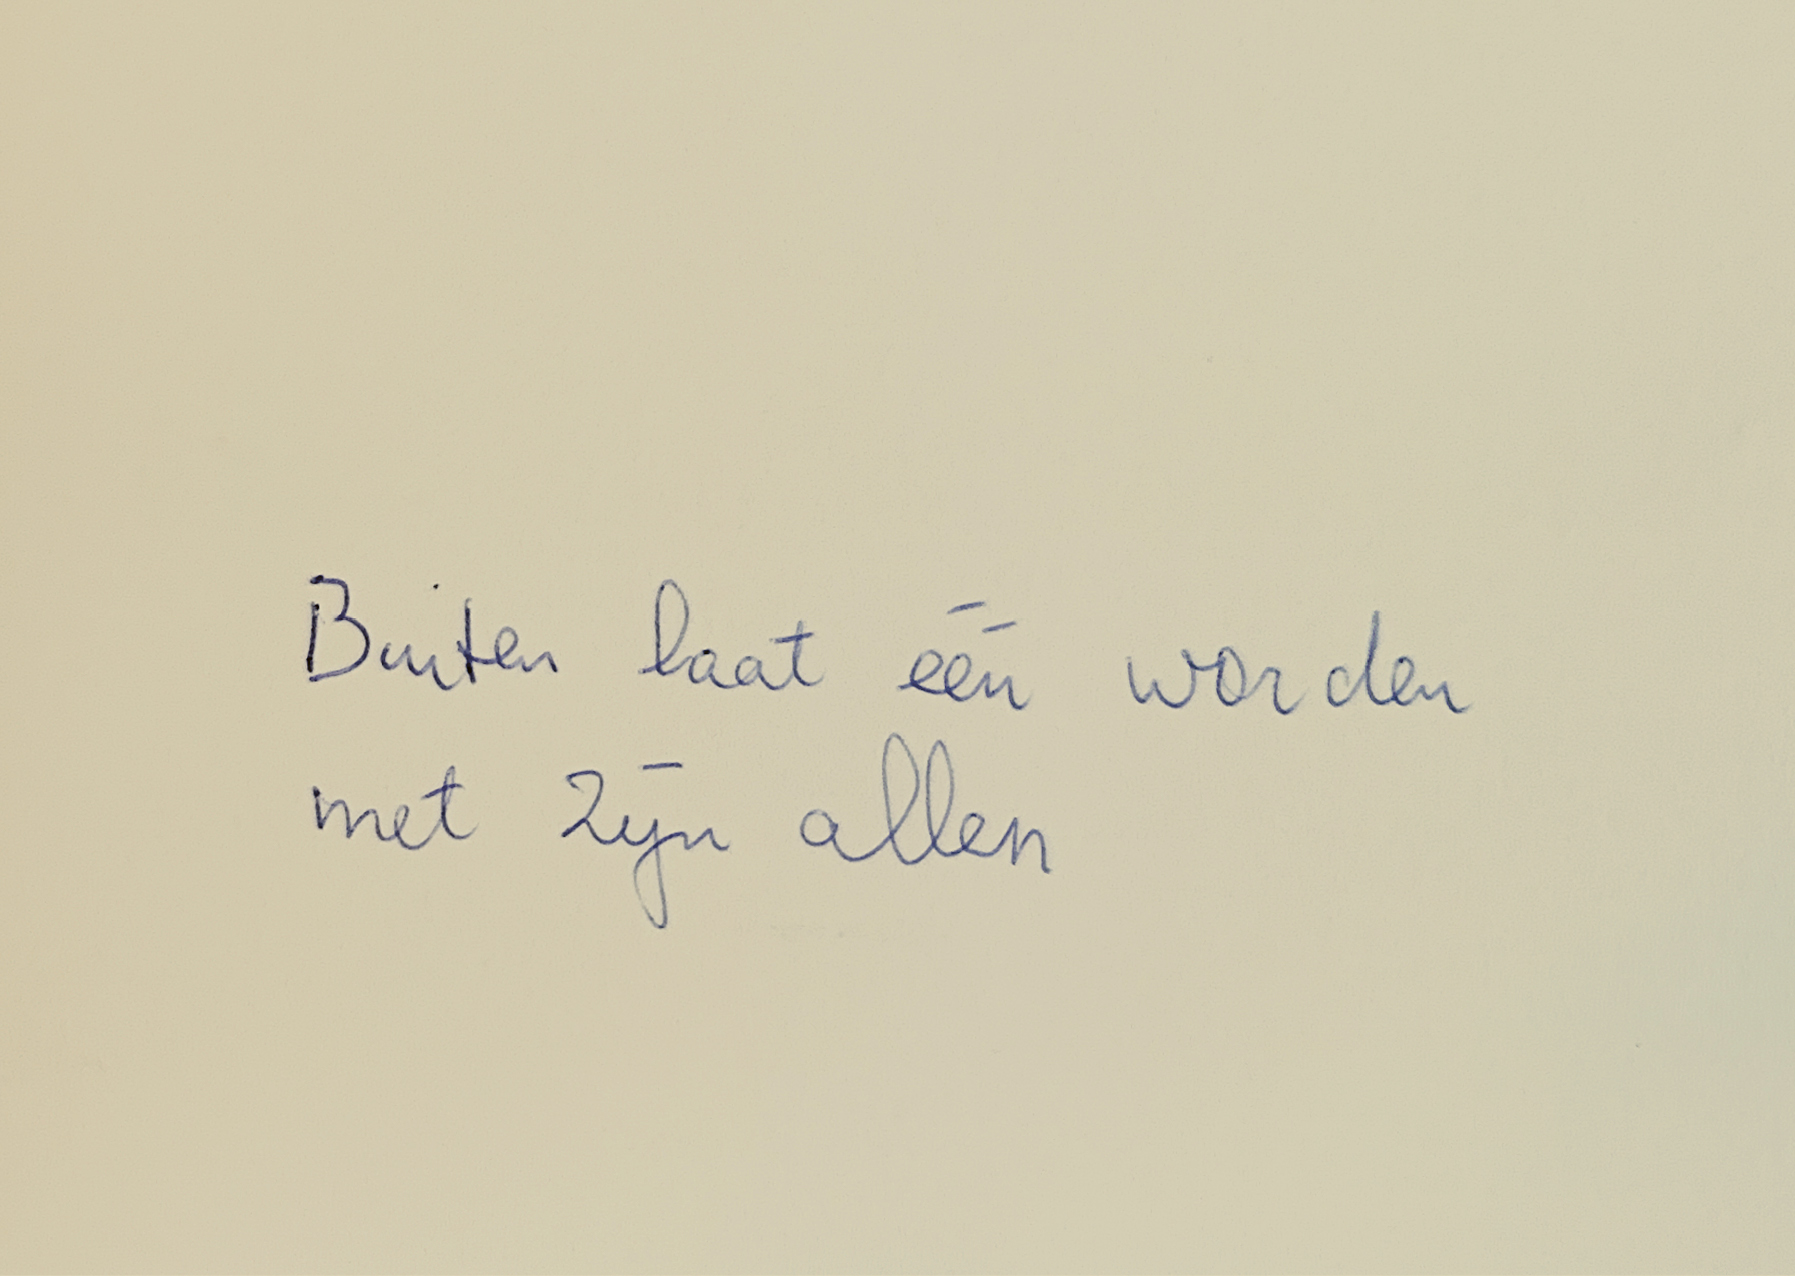 Buiten laat één worden
met zijn allen